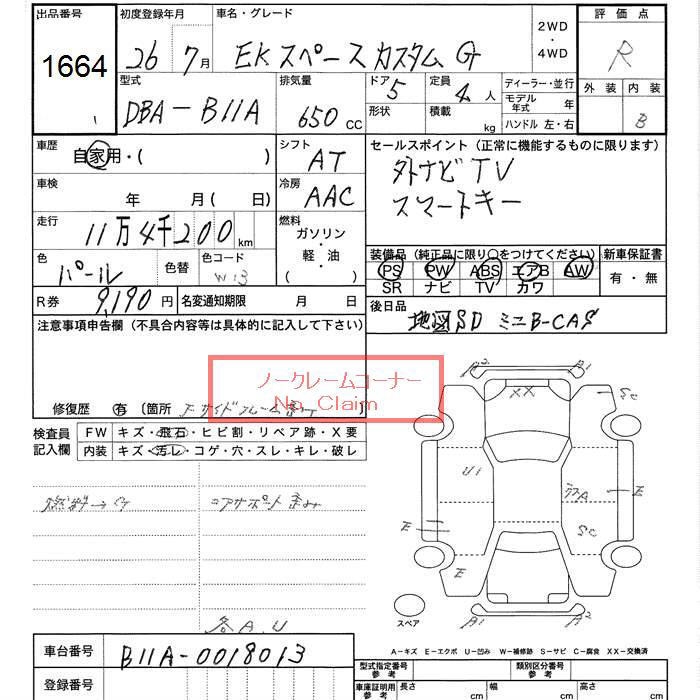 出品番号 初度登録年月 車名・グレード 2WD ・ 4WD 評価点
1664 26 7月 EK スペース カスタム G R
型式 排気量 ドア 定員 ディーラー・並行 外装 内装
DBA-B11A 650 CC 5 4人 モデル年式 年 B
形状 積載 kg ハンドル 左・右
車歴 自家用・( ) シフト AT セールスポイント(正常に機能するものに限ります)
外ナビ TV
スマートキー
車検 年 月( 日) 冷房 AAC
走行 11万4千200km 燃料 ガソリン・軽・油 ( )
装備品(純正品に限り○をつけてください) 新車保証書
色 パール 色替 色コード W13
PS PW ABS エアB AW 有・無
SR ナビ TV カワ
R券 9,190円 名変通知期限 月 日
後日品 地図SD ミニB-CAS
注意事項申告欄(不具合内容等は具体的に記入して下さい)
ノークレームコーナー
No Claim
修復歴 有 〔箇所
検査員記入欄 FW キズ・飛石・ヒビ割・リペア跡・X要
内装 キズ・汚レ・コゲ・穴・スレ・キレ・破レ
コアサポート歪み
各A,U
A2 A1
XX
SC
U1
A
E
E
SC
E
A1 A2
スペア
A-キズ E-エクボ U-凹み W-補修跡 S-サビ C-腐食 XX-交換済
車台番号 B11A-0018013
登録番号
型式指定番号 参考 類別区分番号 参考
車庫証明用 参考 長さ cm 幅 cm 高さ cm